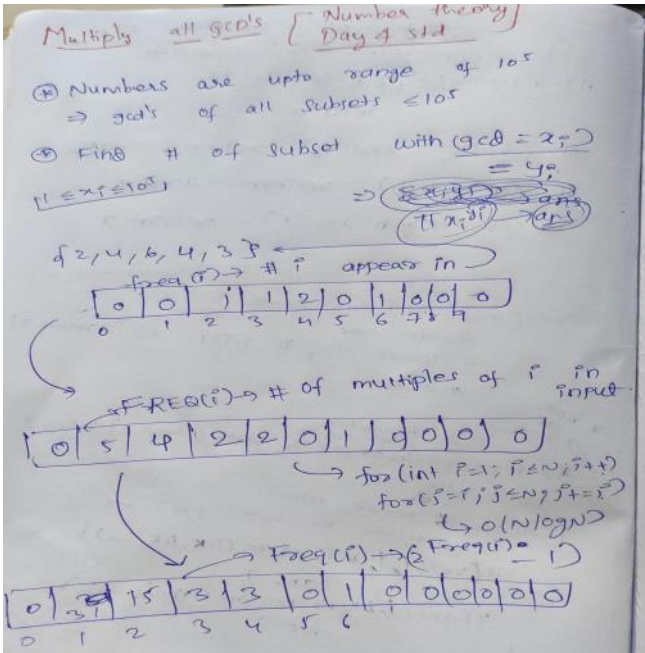 Multiply all gcd's [ Number theory ]
Day 4 std
* Numbers are upto range of 10^5
⇒ gcd's of all subsets ≤ 10^5
* Find # of subset with (gcd = x_i)
= y_i
[1 ≤ x_i ≤ 10^5]
⇒ ans
π x_i^y_i → ans
{2, 4, 6, 4, 3}
freq(i) → # i appears in
0 0 1 1 2 0 1 0 0 0
0 1 2 3 4 5 6 7 8 9
FREQ(i) → # of multiples of i in input
0 5 4 2 2 0 1 0 0 0 0
→ for(int i=1; i≤N; i++)
for(j=i; j≤N; j+=i)
↳ O(N log N)
→ Freq(i) → (2^Freq(i) - 1)
0 31 15 3 3 0 1 0 0 0 0 0
0 1 2 3 4 5 6